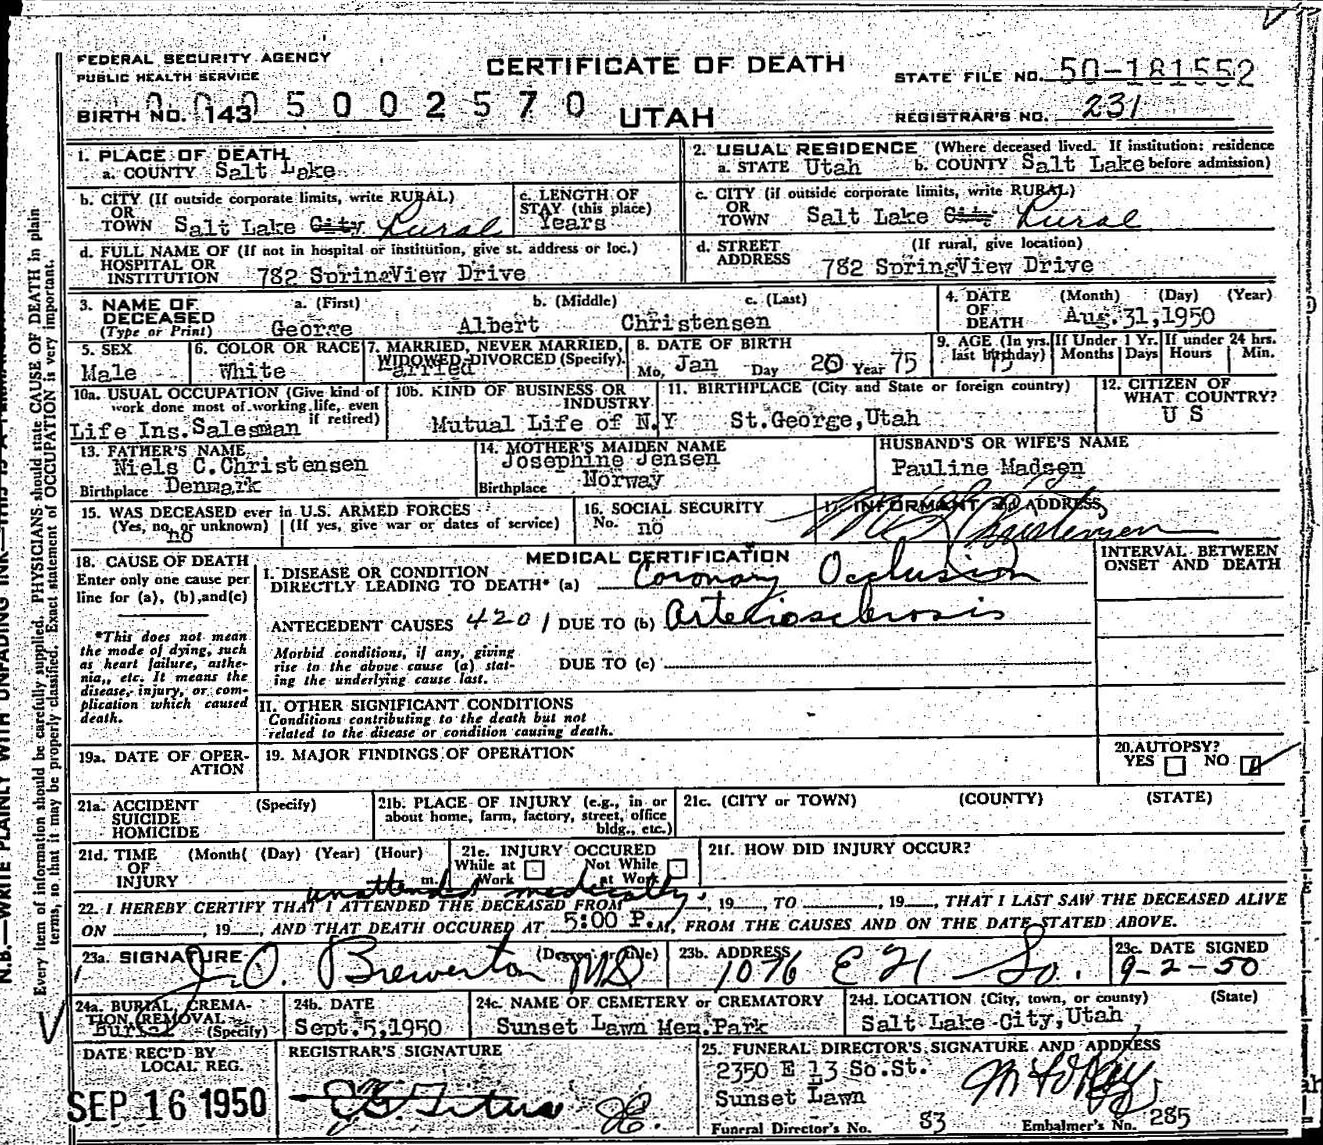 FEDERAL SECURITY AGENCY
PUBLIC HEALTH SERVICE
CERTIFICATE OF DEATH
STATE FILE NO. 50-181552
BIRTH NO. 143 0005002570
UTAH
REGISTRAR'S NO. 231
1. PLACE OF DEATH
a. COUNTY Salt Lake
2. USUAL RESIDENCE (Where deceased lived. If institution: residence
a. STATE Utah b. COUNTY Salt Lake before admission)
b. CITY (If outside corporate limits, write RURAL)
OR
TOWN Salt Lake City Rural
c. LENGTH OF
STAY (this place)
Years
c. CITY (if outside corporate limits, write RURAL)
OR
TOWN Salt Lake City Rural
d. FULL NAME OF (If not in hospital or institution, give st. address or loc.)
HOSPITAL OR
INSTITUTION 782 SpringView Drive
d. STREET (If rural, give location)
ADDRESS 782 SpringView Drive
3. NAME OF a. (First) b. (Middle) c. (Last)
DECEASED
(Type or Print) George Albert Christensen
4. DATE (Month) (Day) (Year)
OF
DEATH Aug.31,1950
5. SEX
Male
6. COLOR OR RACE
White
7. MARRIED, NEVER MARRIED,
WIDOWED, DIVORCED (Specify)
Married
8. DATE OF BIRTH
Mo. Jan Day 20 Year 75
9. AGE (In yrs. last birthday) 75
If Under 1 Yr. Months Days
If under 24 hrs. Hours Min.
10a. USUAL OCCUPATION (Give kind of
work done most of working life, even
if retired)
Life Ins.Salesman
10b. KIND OF BUSINESS OR
INDUSTRY
Mutual Life of N.Y
11. BIRTHPLACE (City and State or foreign country)
St.George,Utah
12. CITIZEN OF
WHAT COUNTRY?
U S
13. FATHER'S NAME
Niels C.Christensen
Birthplace Denmark
14. MOTHER'S MAIDEN NAME
Josephine Jensen
Birthplace Norway
HUSBAND'S OR WIFE'S NAME
Pauline Madsen
15. WAS DECEASED ever in U.S. ARMED FORCES
(Yes, no, or unknown) (If yes, give war or dates of service)
no
16. SOCIAL SECURITY
No. no
17. INFORMANT and ADDRESS
Christensen
18. CAUSE OF DEATH
Enter only one cause per
line for (a), (b), and (c)
*This does not mean
the mode of dying, such
as heart failure, asthe-
nia,, etc. It means the
disease, injury, or com-
plication which caused
death.
MEDICAL CERTIFICATION
I. DISEASE OR CONDITION
DIRECTLY LEADING TO DEATH* (a) Coronary Occlusion
ANTECEDENT CAUSES 4201 DUE TO (b) Arteriosclerosis
Morbid conditions, if any, giving
rise to the above cause (a) stat-
ing the underlying cause last.
DUE TO (c)
INTERVAL BETWEEN
ONSET AND DEATH
II. OTHER SIGNIFICANT CONDITIONS
Conditions contributing to the death but not
related to the disease or condition causing death.
19a. DATE OF OPER-
ATION
19. MAJOR FINDINGS OF OPERATION
20. AUTOPSY?
YES NO
21a. ACCIDENT (Specify)
SUICIDE
HOMICIDE
21b. PLACE OF INJURY (e.g., in or
about home, farm, factory, street, office
bldg., etc.)
21c. (CITY or TOWN) (COUNTY) (STATE)
21d. TIME (Month( (Day) (Year) (Hour)
OF
INJURY m.
21e. INJURY OCCURED
While at Work Not While at Work
21f. HOW DID INJURY OCCUR?
unattended medically
22. I HEREBY CERTIFY THAT I ATTENDED THE DECEASED FROM , 19 , TO , 19 , THAT I LAST SAW THE DECEASED ALIVE
ON , 19 , AND THAT DEATH OCCURED AT 5:00 P.M, FROM THE CAUSES AND ON THE DATE STATED ABOVE.
23a. SIGNATURE (Degree or title)
J. O. Brewerton MD
23b. ADDRESS
1076 E 21 So.
23c. DATE SIGNED
9-2-50
24a. BURIAL, CREMA-
TION (REMOVAL
Burial (Specify)
24b. DATE
Sept.5,1950
24c. NAME OF CEMETERY or CREMATORY
Sunset Lawn Mem.Park
24d. LOCATION (City, town, or county) (State)
Salt Lake City,Utah
DATE REC'D BY
LOCAL REG.
SEP 16 1950
REGISTRAR'S SIGNATURE
25. FUNERAL DIRECTOR'S SIGNATURE AND ADDRESS
2350 E 13 So.St.
Sunset Lawn
Funeral Director's No. 83 Embalmer's No. 285
Every item of information should be carefully supplied. PHYSICIANS should state CAUSE OF DEATH in plain
terms, so that it may be properly classified. Exact statement of OCCUPATION is very important.